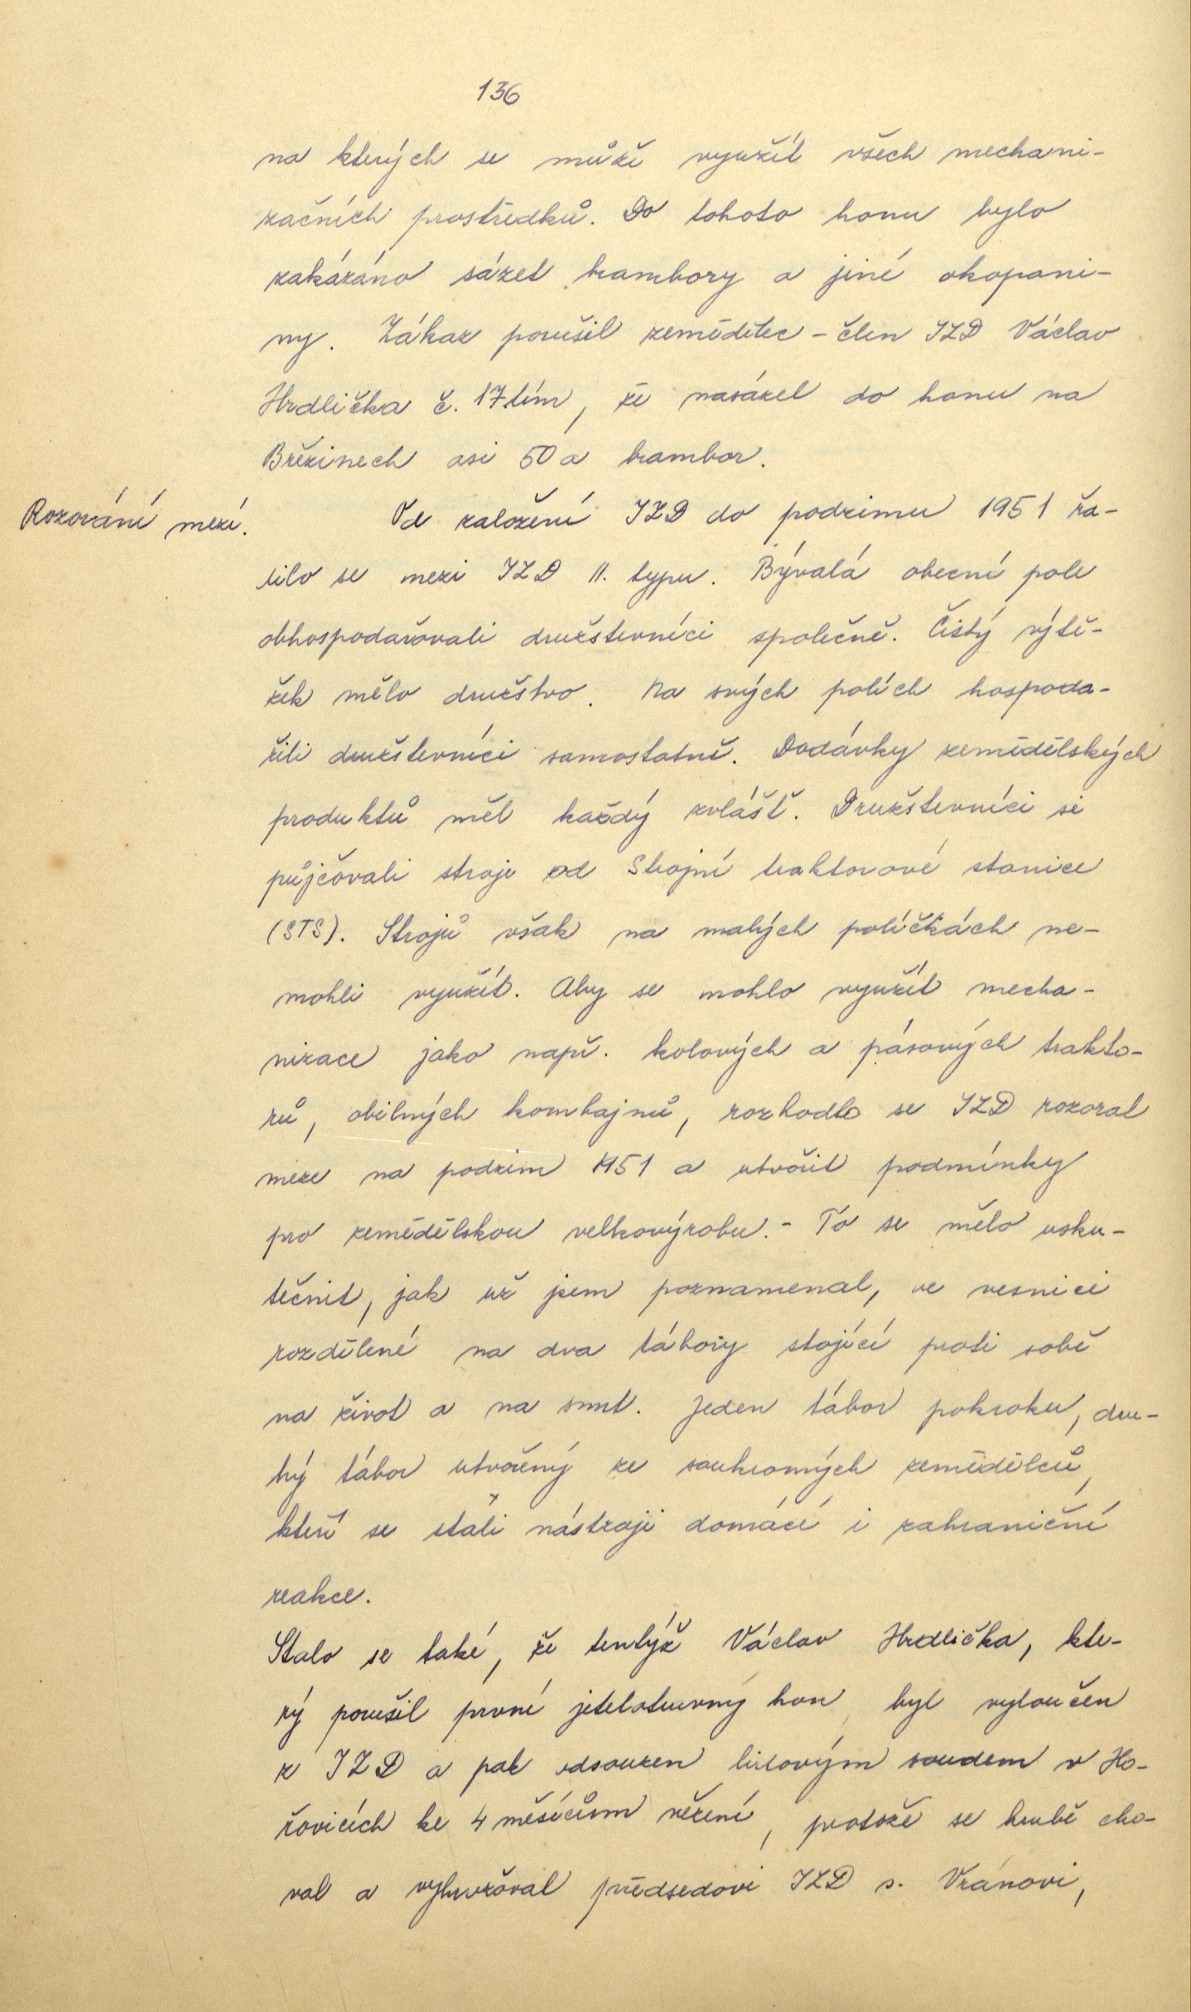 136
na kterých se může využít všech mechani-
začních prostředků. Do tohoto honu bylo
zakázáno sázet brambory a jiné okopani-
ny. Zákaz porušil zemědělec – člen JZD Václav
Hrdlička č. 17 tím, že nasázel do honu na
Březinech asi 50 a brambor.
Rozorání mezí.
Od založení JZD do podzimu 1951 řa-
dilo se mezi JZD II. typu. Bývalá obecní pole
obhospodařovali družstevníci společně. Čistý výtě-
žek mělo družstvo. Na svých polích hospoda-
řili družstevníci samostatně. Dodávky zemědělských
produktů měl každý zvlášť. Družstevníci si
půjčovali stroje od Strojní traktorové stanice
(STS). Strojů však na malých políčkách ne-
mohli využít. Aby se mohlo využít mecha-
nizace jako např. kolových a pásových trakto-
rů, obilných kombajnů, rozhodlo se JZD rozorat
meze na podzim 1951 a utvořit podmínky
pro zemědělskou velkovýrobu. - To se mělo usku-
tečnit, jak už jsem poznamenal, ve vesnici
rozdělené na dva tábory stojící proti sobě
na život a na smrt. Jeden tábor pokroku, dru-
hý tábor utvořený ze soukromých zemědělců,
kteří se stali nástroji domácí i zahraniční
reakce.
Stalo se také, že tentýž Václav Hrdlička, kte-
rý porušil první jetelotravný hon, byl vyloučen
z JZD a pak odsouzen lidovým soudem v Ho-
řovicích ke 4 měsícům vězení, protože se hrubě cho-
val a vyhrožoval předsedovi JZD s. Vránovi,